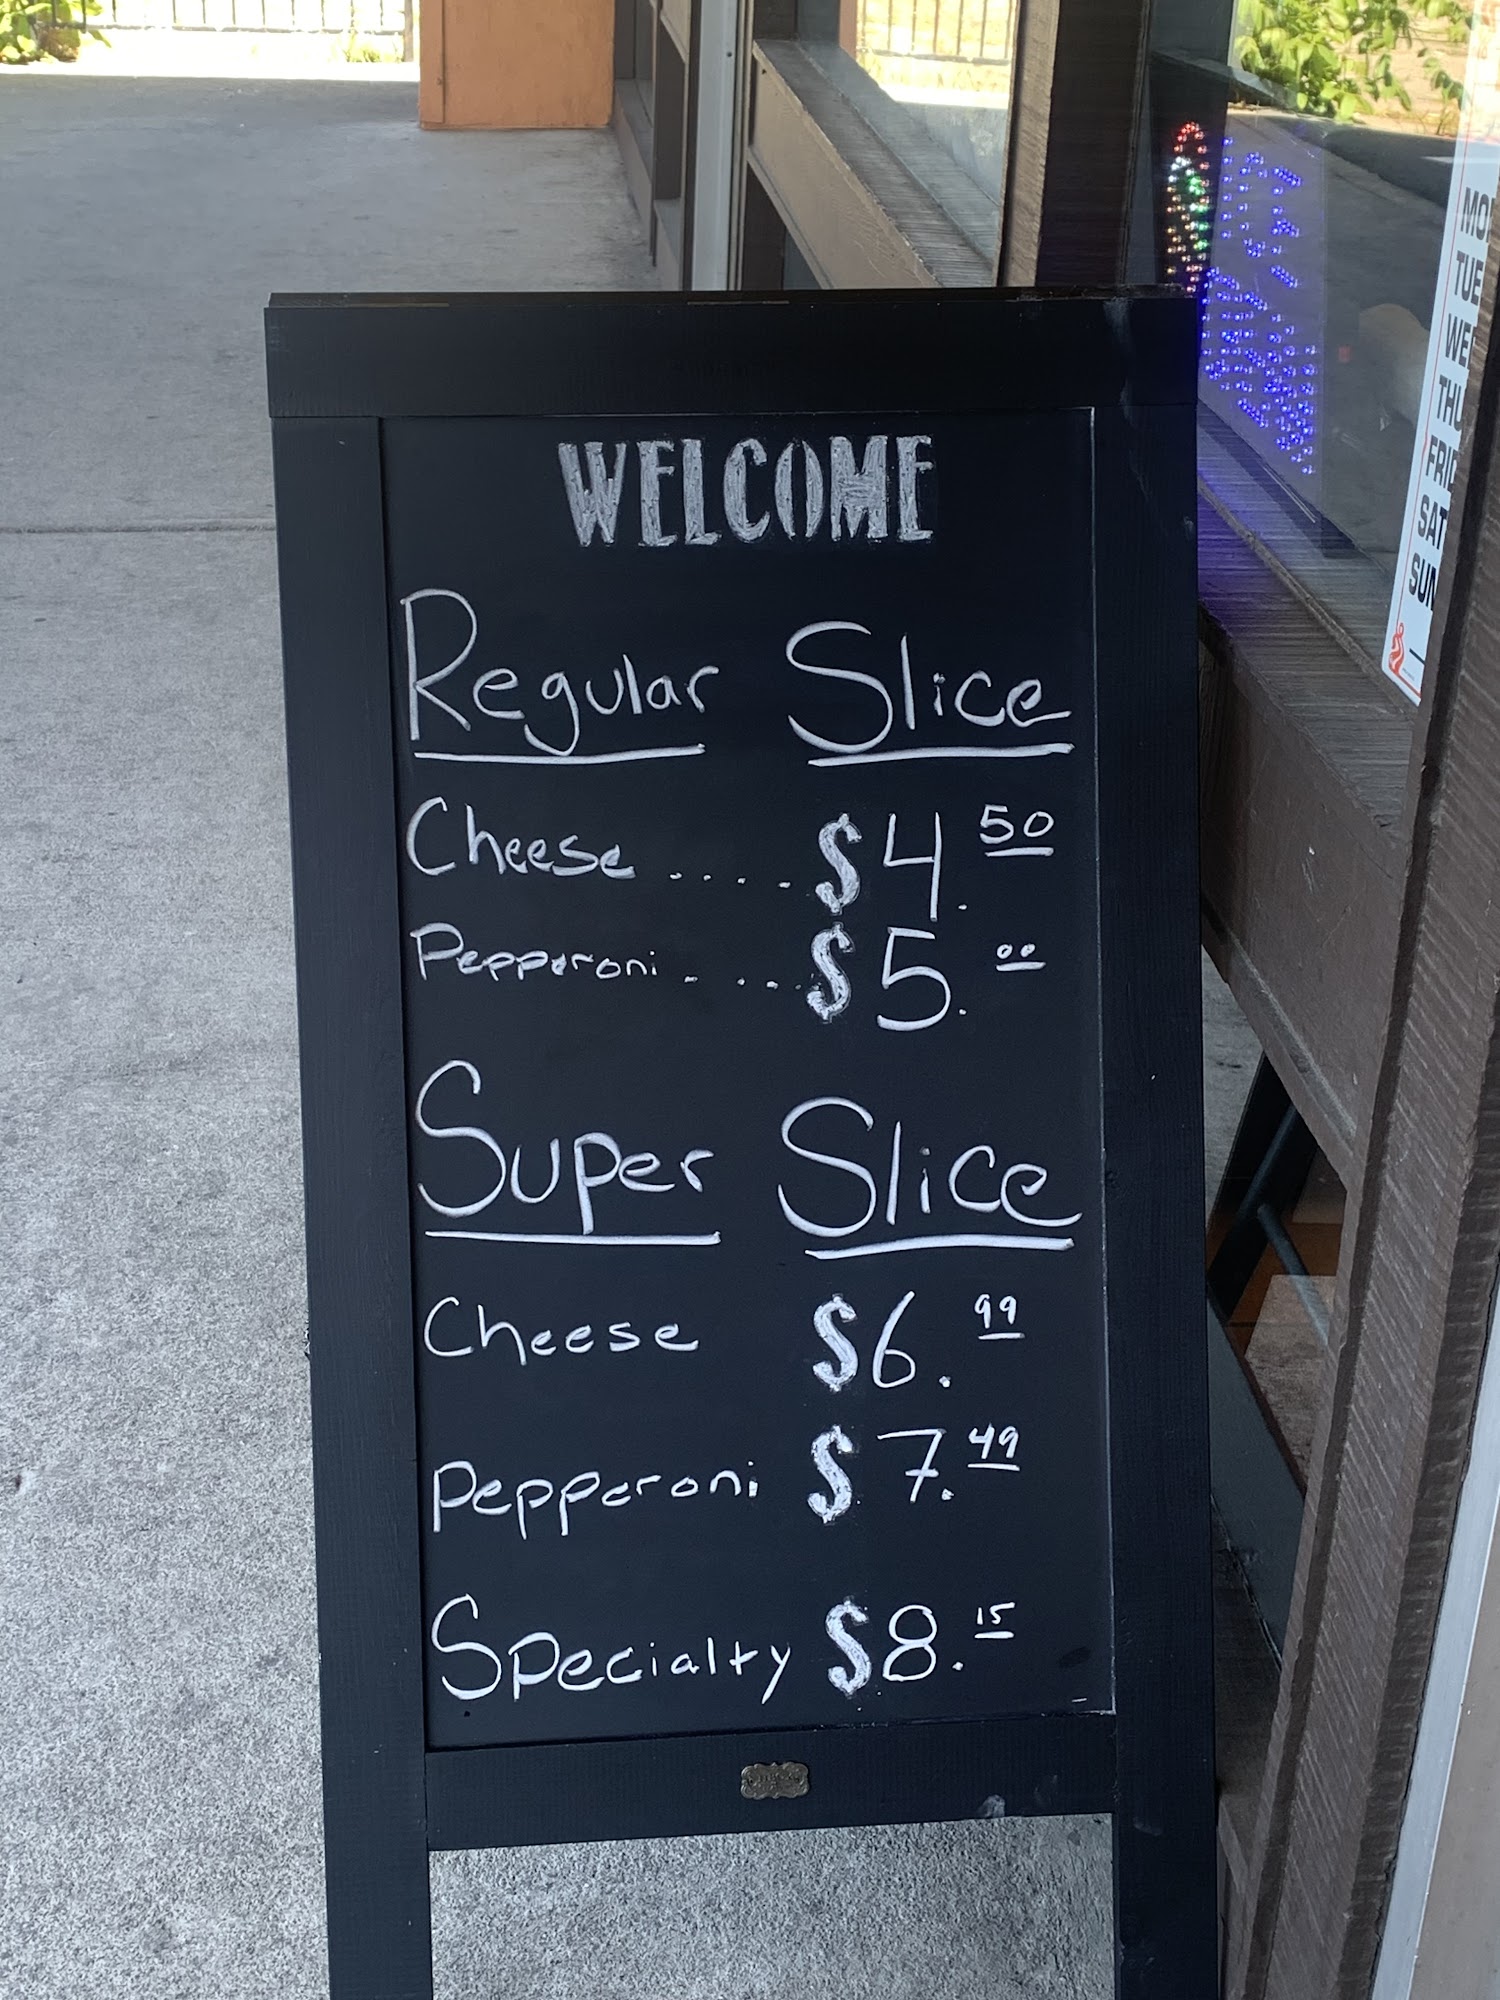 WELCOME
Regular Slice
Cheese ..... $4.50
Pepperoni .... $5.00
Super Slice
Cheese $6.99
Pepperoni $7.49
Specialty $8.15
MO
TUE
WE
THU
FRI
SAT
SUN